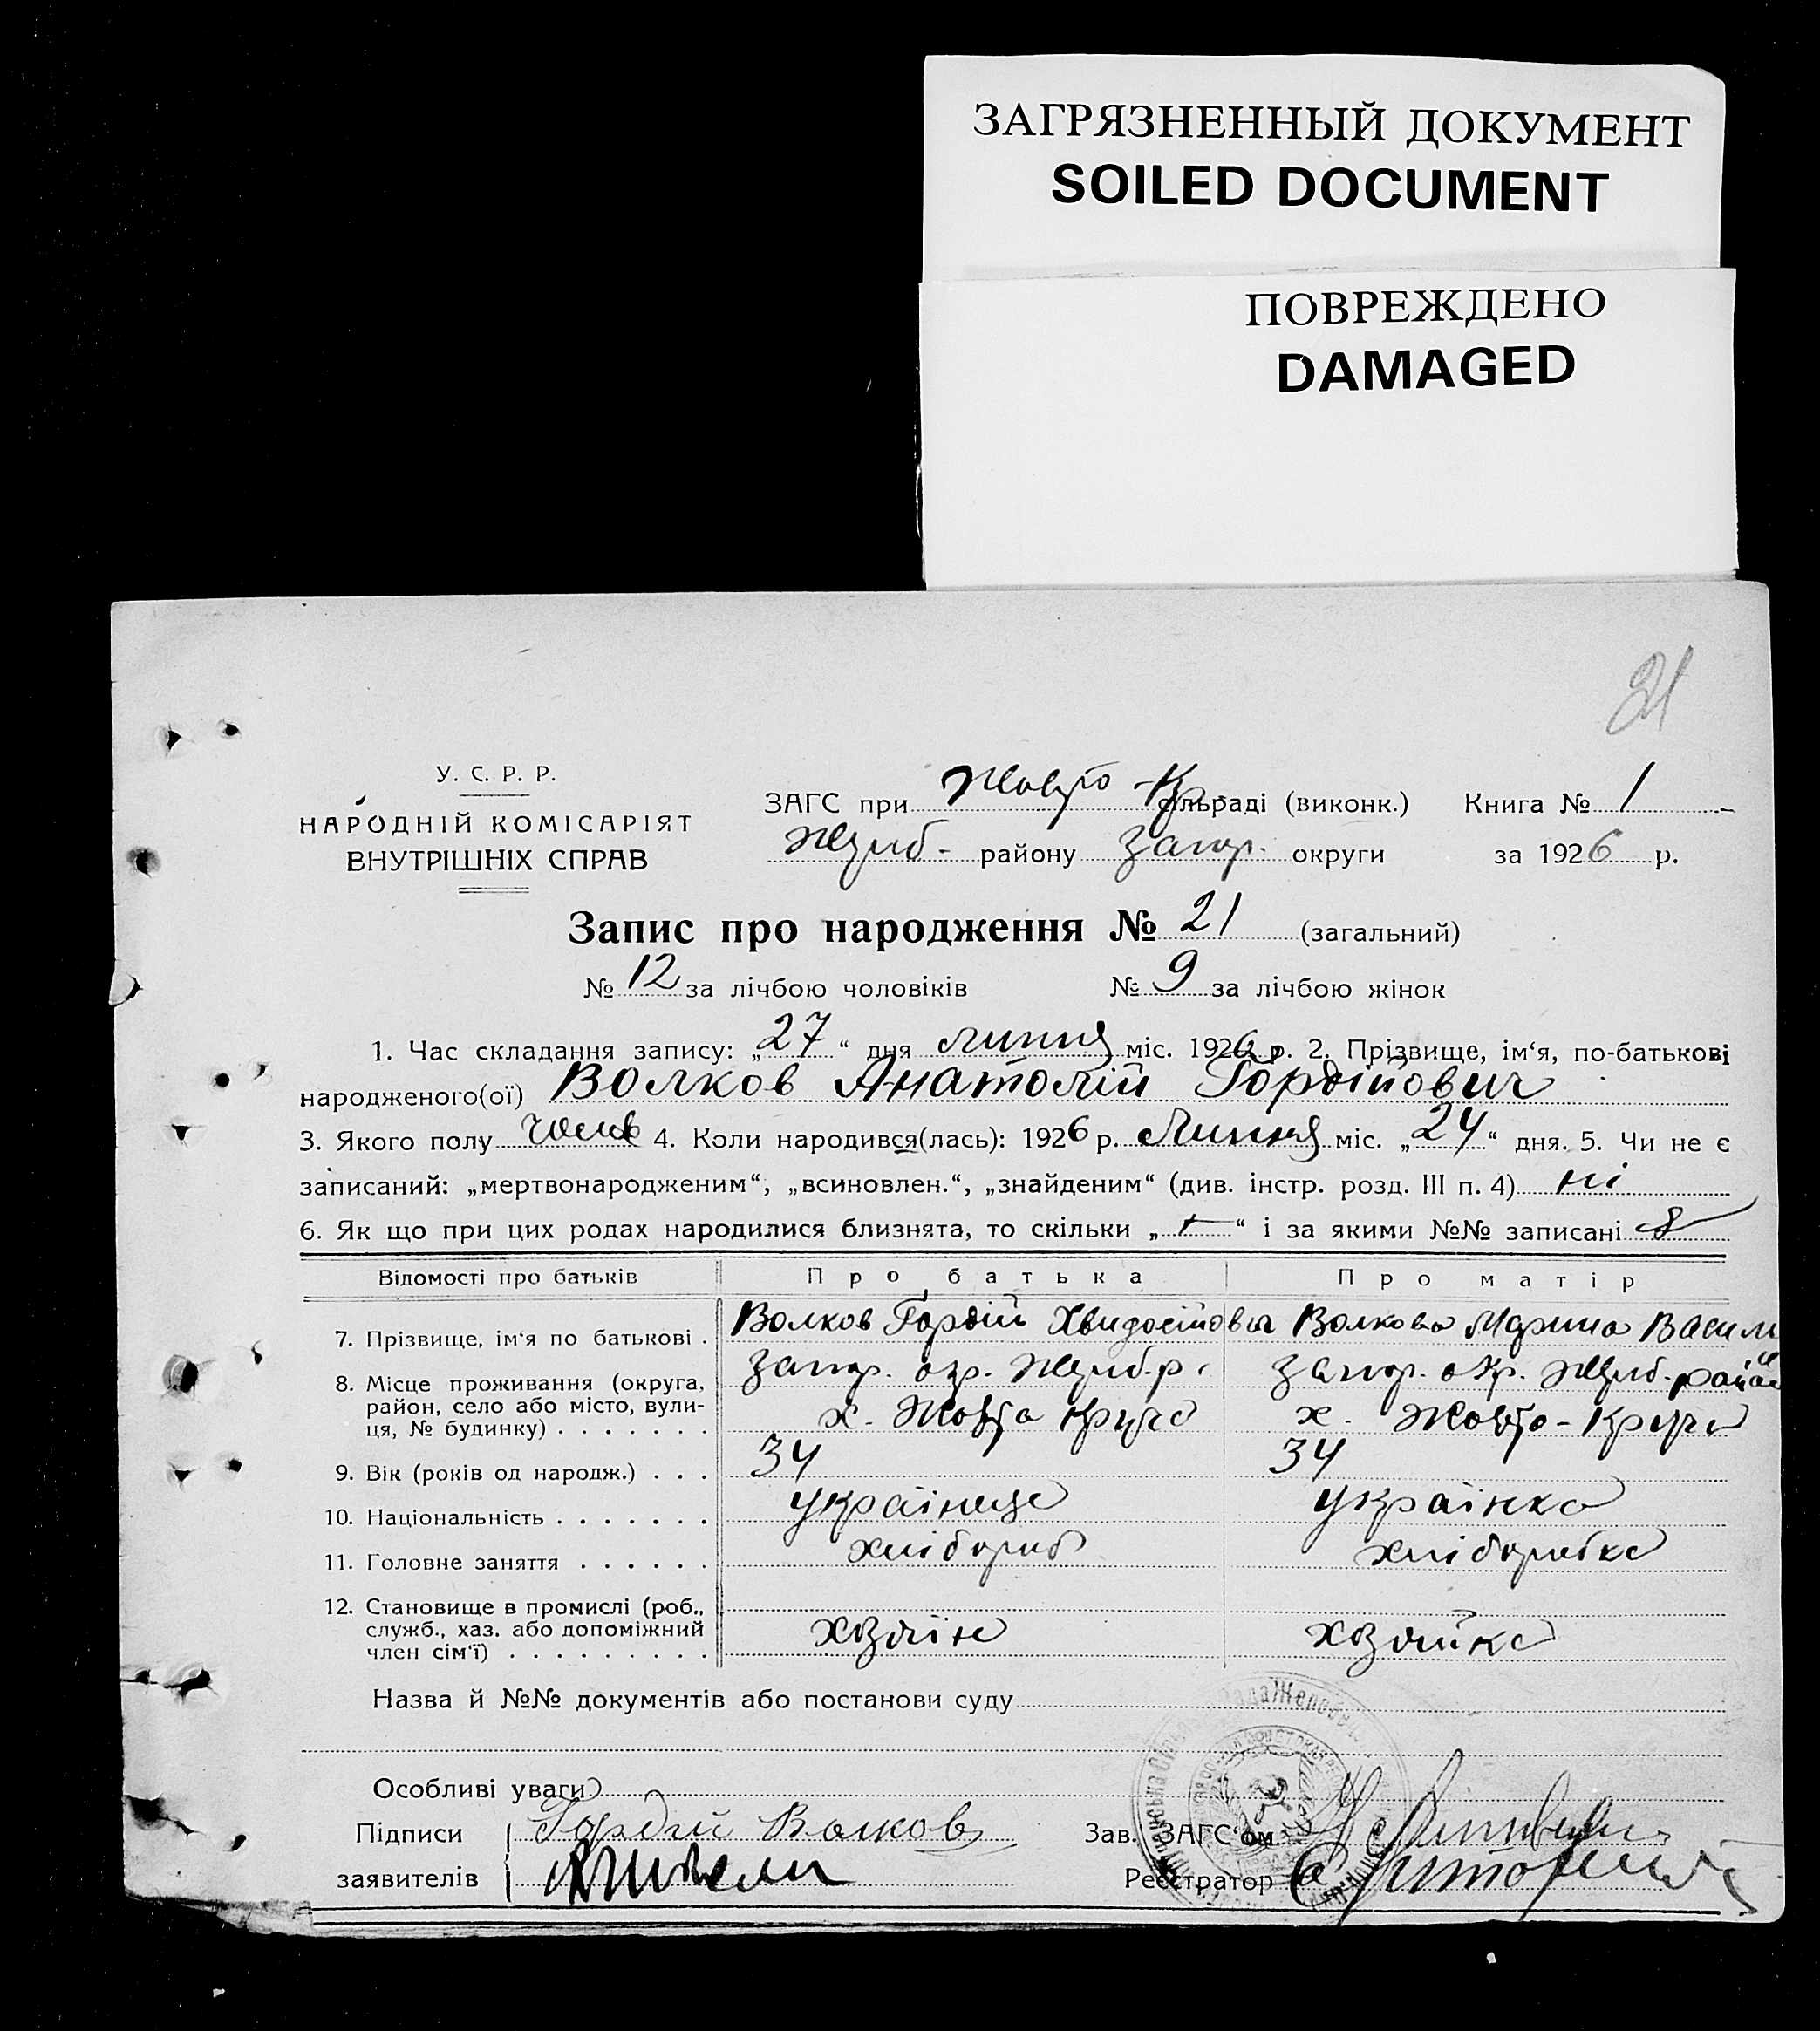 ЗАГРЯЗНЕННЫЙ ДОКУМЕНТ
SOILED DOCUMENT
ПОВРЕЖДЕНО
DAMAGED
21
У. С. Р. Р.
НАРОДНІЙ КОМІСАРІЯТ
ВНУТРІШНІХ СПРАВ
ЗАГС при Жовто-Кр. сільраді (виконк.) Книга № 1
району Запор. округи за 1926 р.
Запис про народження № 21 (загальний)
№ 12 за лічбою чоловіків № 9 за лічбою жінок
1. Час складання запису: „27“ дня липня міс. 1926 р. 2. Прізвище, ім‘я, по-батькові
народженого(ої) Волков Анатолій Гордійович
3. Якого полу чолов 4. Коли народився(лась): 1926 р. Липня міс. „24“ дня. 5. Чи не є
записаний: „мертвонародженим“, „всиновлен.“, „знайденим“ (див. інстр. розд. III п. 4) ні
6. Як що при цих родах народилися близнята, то скільки „—“ і за якими №№ записані
Відомості про батьків Про батька Про матір
7. Прізвище, ім‘я по батькові . Волков Гордій Волкова Марина Васил
8. Місце проживання (округа, район, село або місто, вулиця, № будинку) . . . . . . .
Запор. окр. р. Запор. окр. район
х. Жовта круча х. Жовто-Круча
9. Вік (років од народж.) . . . 34 34
10. Національність . . . . . . . українець українка
11. Головне заняття . . . . . . хлібороб хліборобка
12. Становище в промислі (роб., служб., хаз. або допоміжний член сім‘ї) . . . . . . . . . хозяїн хозяйка
Назва й №№ документів або постанови суду
Особливі уваги
Підписи Гордій Волков Зав. ЗАГС‘ом
заявителів Реєстратор